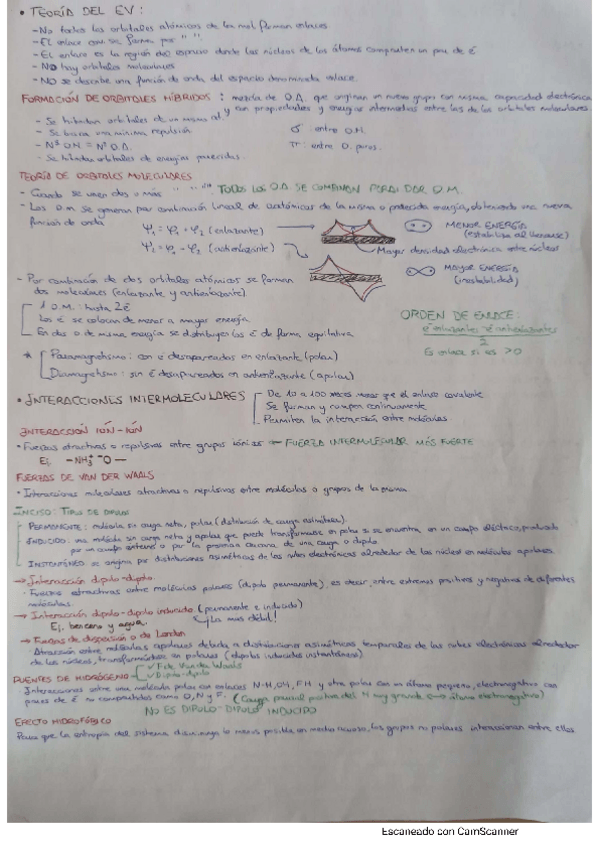 • TEORÍA DEL EV:
- No todos los orbitales atómicos de la mol forman enlaces.
- El enlace cov. se forma por " "
- El enlace es la región del espacio donde los núcleos de los átomos comparten un par de é
- NO hay orbitales moleculares
- NO se describe una función de onda del espacio denominado enlace.
FORMACIÓN DE ORBITALES HÍBRIDOS: mezcla de O.A. que originan un nuevo grupo con misma capacidad electrónica
y con propiedades y energías intermedias entre las de los orbitales moleculares.
- Se hibridan orbitales de un mismo át.
- Se busca una mínima repulsión. σ: entre O.H.
- Nº O.H = Nº O.A. π: entre O. puros.
- Se hibridan orbitales de energías parecidas.
TEORÍA DE ORBITALES MOLECULARES
- Cuando se unen dos o más " " " TODOS LOS O.A SE COMBINAN PARA DAR O.M.
- Los O.M se generan por combinación lineal de de la misma o parecida energía, obteniendo una nueva
función de onda
MENOR ENERGÍA
(estabiliza al)
Mayor densidad electrónica entre núcleos
MAYOR ENERGÍA
(inestabilidad)
- Por combinación de dos orbitales atómicos se forman
dos moleculares (enlazante y antienlazante)
1 O.M.: hasta 2é
Los é se colocan de menor a mayor energía
En dos o de misma energía se distribuyen los é de forma equitativa
ORDEN DE ENLACE:
é enlazantes - é antienlazantes
2
Enlace si es > 0
* Paramagnetismo: con é desapareados en enlazante (polar)
Diamagnetismo: sin é desapareados en antienlazante (apolar)
• INTERACCIONES INTERMOLECULARES
De 10 a 100 veces menor que el enlace covalente
Se forman y rompen continuamente
Permiten la interacción entre moléculas.
INTERACCIÓN IÓN-IÓN
• Fuerzas atractivas o repulsivas entre grupos iónicos → FUERZA INTERMOLECULAR MÁS FUERTE
Ej. -NH3+ -O-
FUERZAS DE VAN DER WAALS
• Interacciones moleculares atractivas o repulsivas entre moléculas o grupos de la misma
INCISO: TIPOS DE DIPOLO
PERMANENTE: molécula sin carga neta, polar (distribución de carga asimétrica).
INDUCIDO: una molécula sin carga neta y apolar que puede transformarse en polar si se encuentra en un campo eléctrico, producido
por un campo externo o por la presencia cercana de una carga o dipolo.
INSTANTÁNEO: se origina por distribuciones asimétricas de las nubes electrónicas alrededor de los núcleos en moléculas apolares.
→ Interacción dipolo-dipolo.
• Fuerzas atractivas entre moléculas polares (dipolo permanente), es decir, entre extremos positivos y negativos de diferentes
moléculas.
→ Interacción dipolo-dipolo inducido (permanente e inducido)
Ej. benceno y agua. La más débil!
→ Fuerzas de dispersión o de London
Atracción entre moléculas apolares debida a distribuciones asimétricas temporales de las nubes electrónicas alrededor
de los núcleos, transformándose en polares (dipolos inducidos instantáneos)
PUENTES DE HIDRÓGENO ✓ F. de Van der Waals
✓ Dipolo-dipolo
Interacciones entre una molécula polar con enlaces N-H, OH, FH y otra polar con un átomo pequeño, electronegativo con
pares de é no compartidos como O, N y F. (Carga parcial positiva del H muy grande ⟺ átomo electronegativo)
NO ES DIPOLO-DIPOLO INDUCIDO
EFECTO HIDROFÓBICO
Para que la entropía del sistema disminuya lo menos posible en medio acuoso, los grupos no polares interaccionan entre ellos
Escaneado con CamScanner